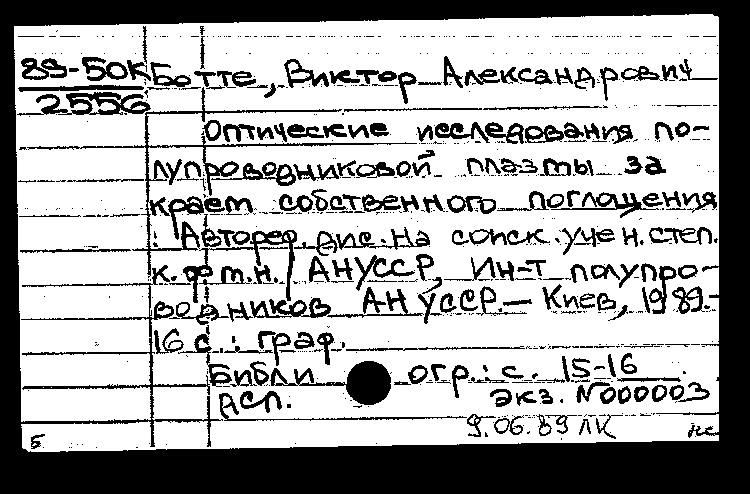 89-50К Ботте, Виктор Александрович
2556
Оптические исследования по-
лупроводниковой плазмы за
краем собственного поглощения
: Автореф. дис. на соиск. учен. степ.
к. ф. м. н. / АН УССР, Ин-т полупро-
водников АН УССР. — Киев, 1989. -
16 с. : граф.
Библиогр.: с. 15-16
ДСП. Экз. N000003
9.06.89 ЛК нс
5